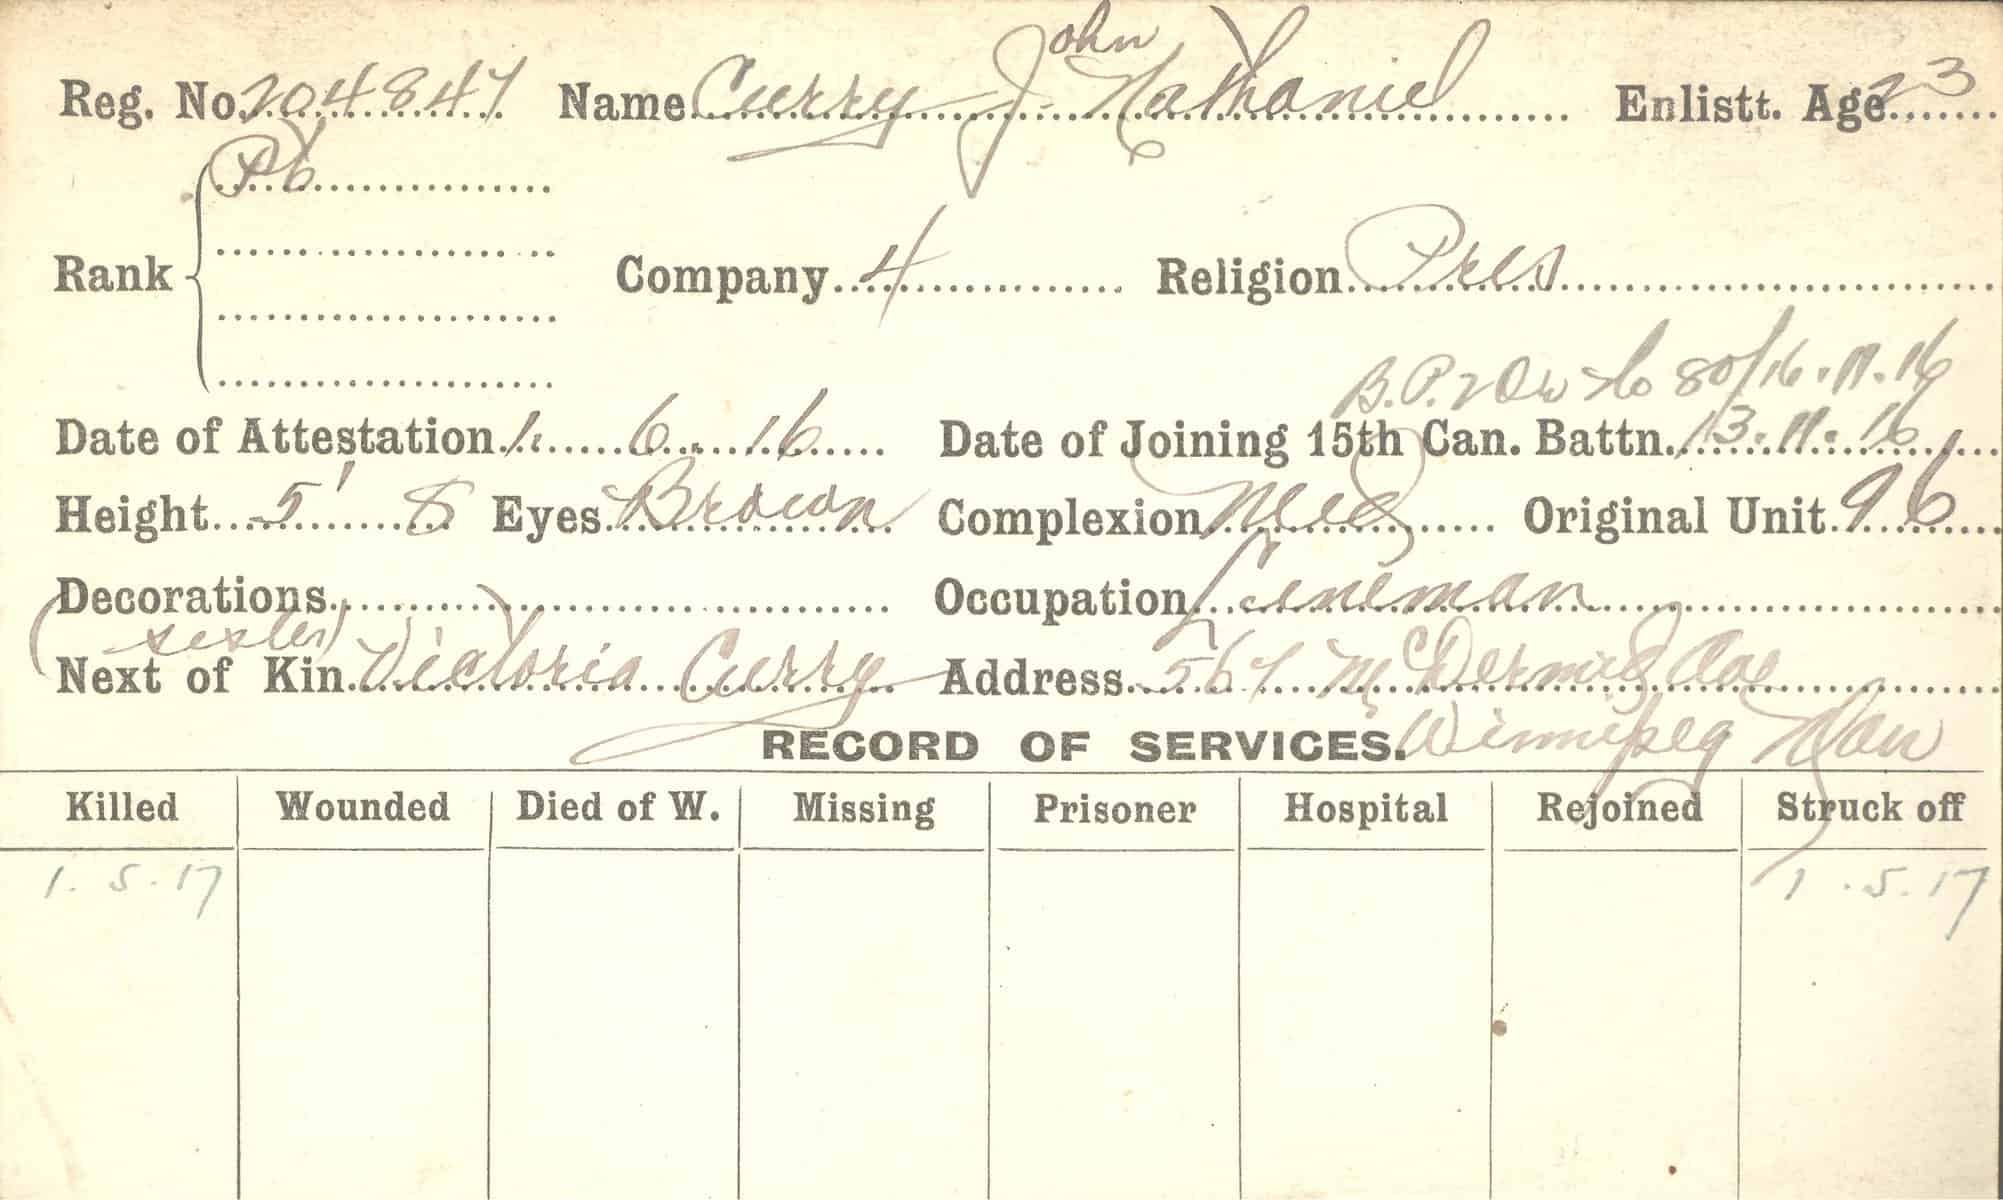 Reg. No. 204847 Name Curry John Nathaniel Enlistt. Age 23
Rank Company 4 Religion Pres
80/16.11.16
Date of Attestation 1. 6. 16 Date of Joining 15th Can. Battn. 13.11.16
Height 5' 8 Eyes Brown Complexion Med Original Unit 96
Decorations Occupation Lineman
(sister)
Next of Kin Victoria Curry Address 567 McDermid Ave
RECORD OF SERVICES. Winnipeg Man
Killed Wounded Died of W. Missing Prisoner Hospital Rejoined Struck off
1.5.17 1.5.17